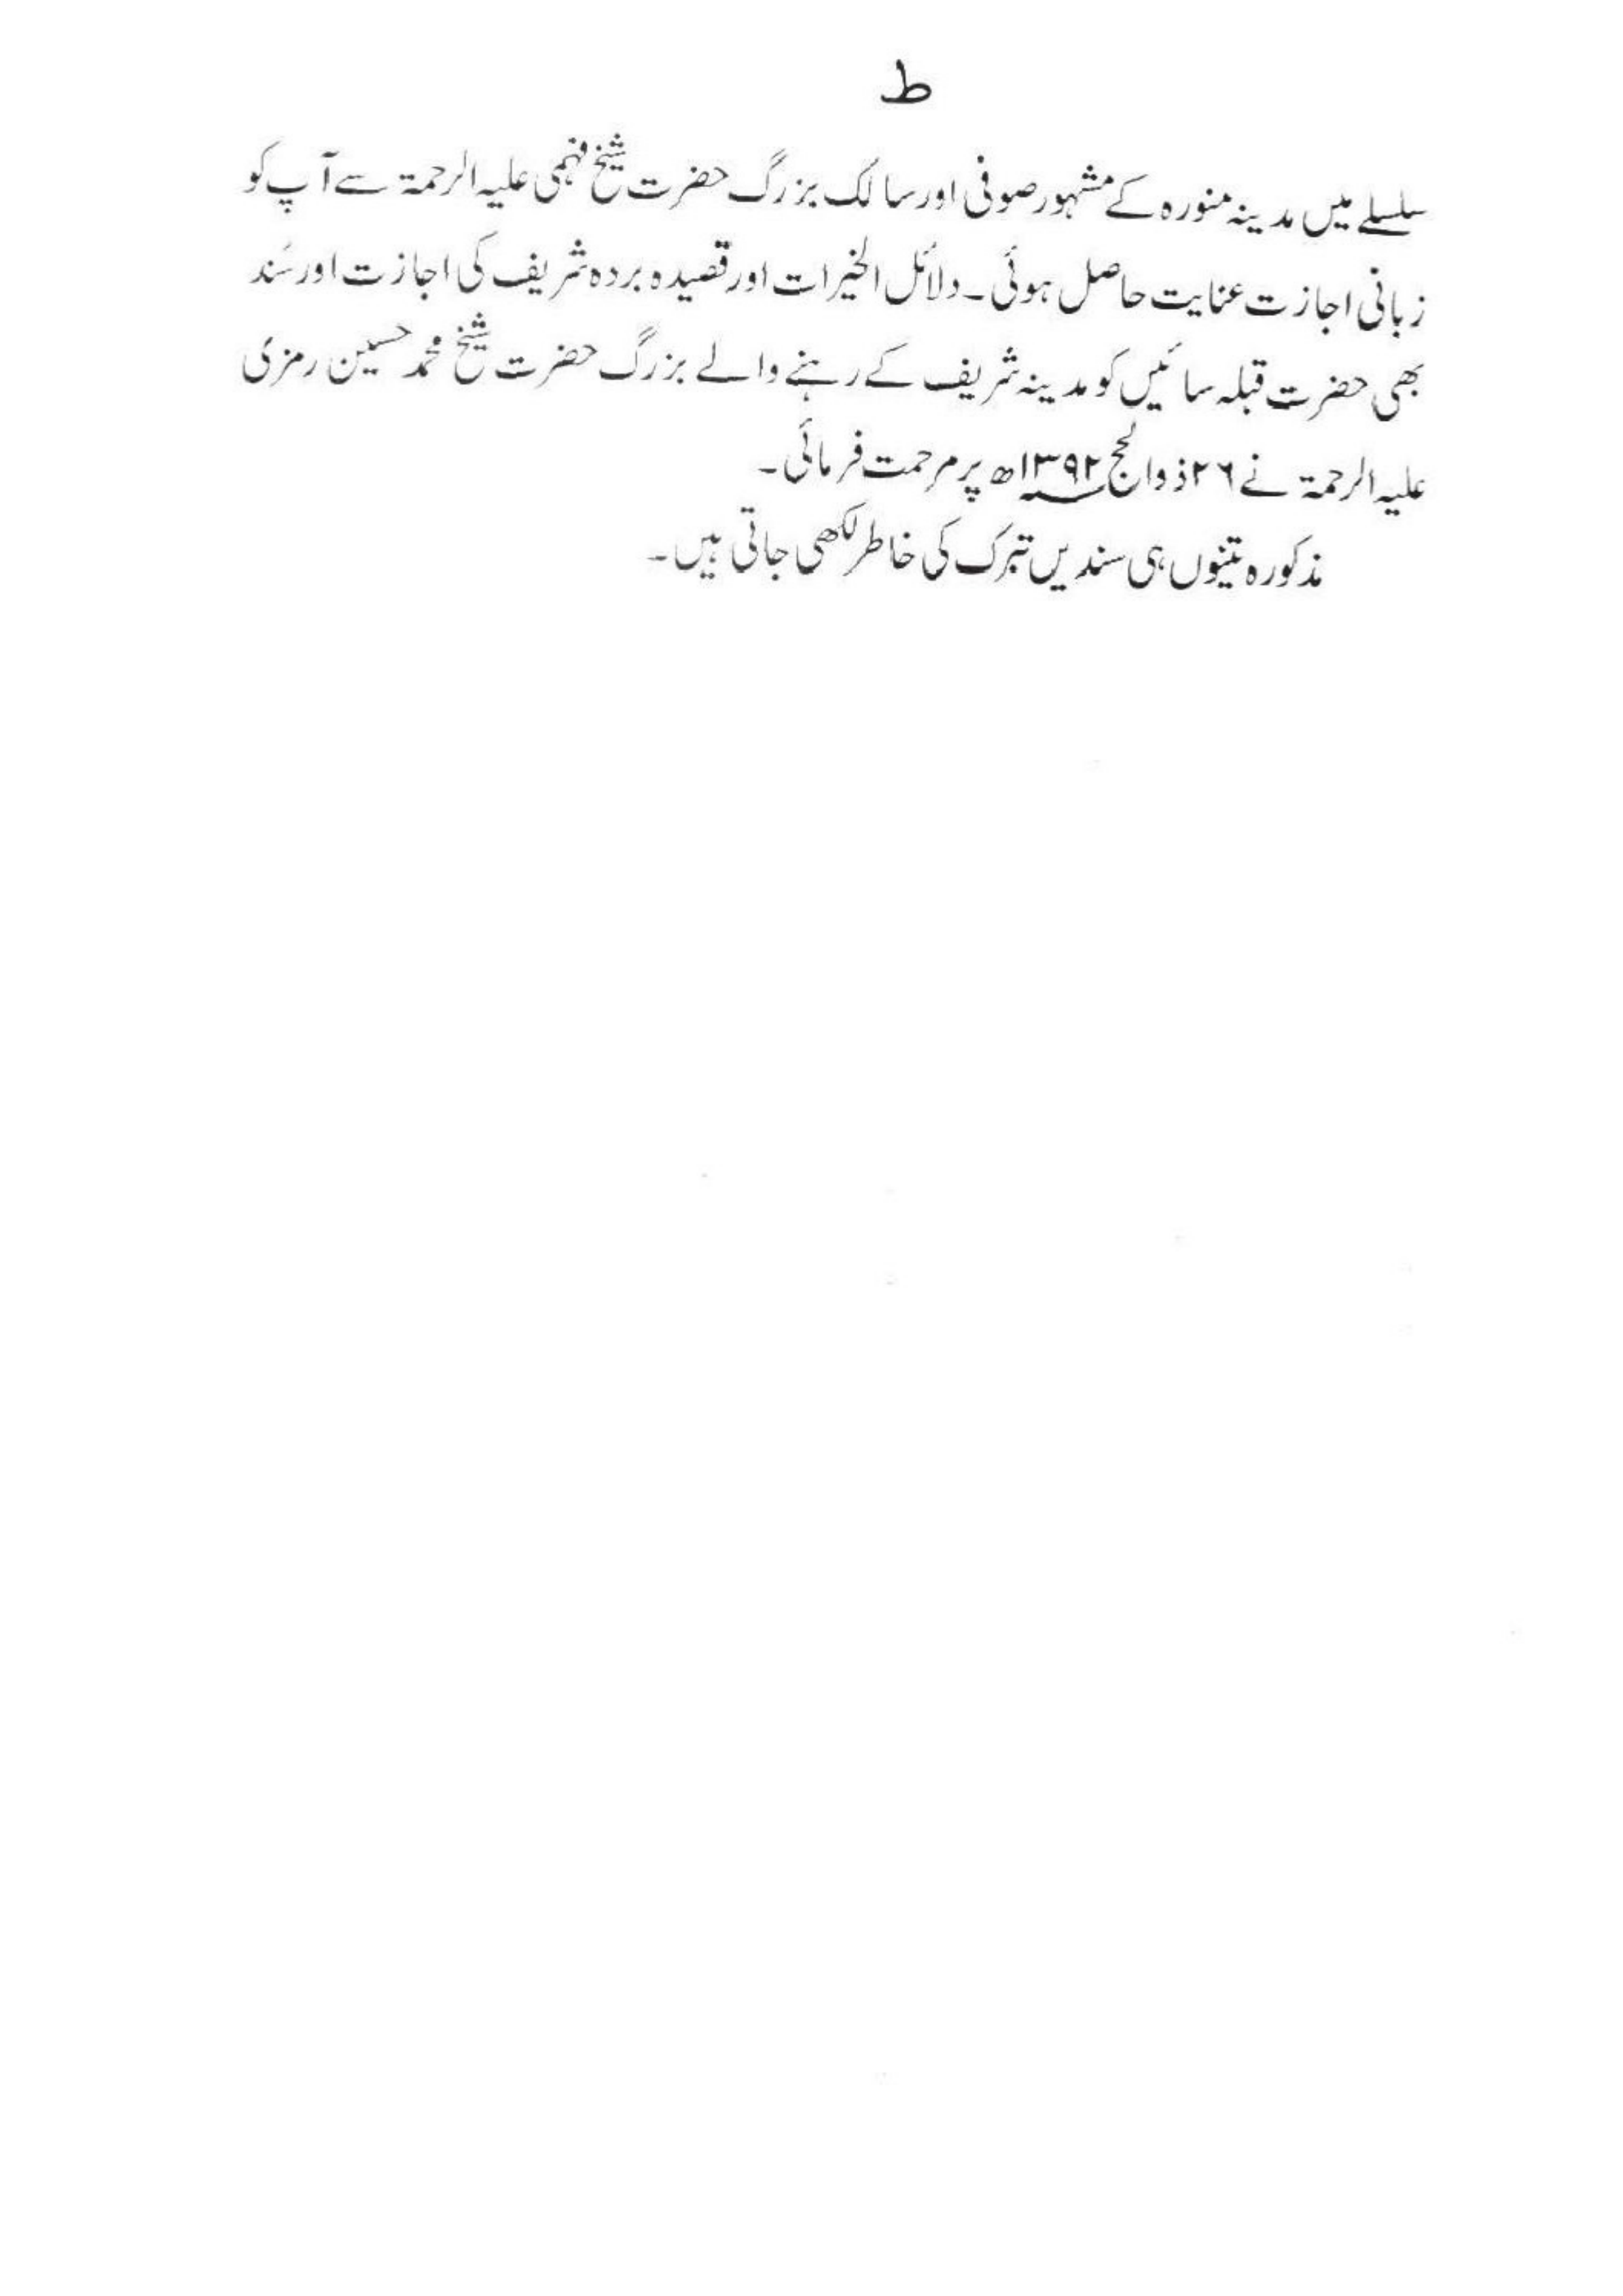 ط
سلسلے میں مدینہ منورہ کے مشہور صوفی اور سالک بزرگ حضرت شیخ فہمی علیہ الرحمۃ سے آپ کو
زبانی اجازت عنایت حاصل ہوئی۔ دلائل الخیرات اور قصیدہ بردہ شریف کی اجازت اور سَند
بھی حضرت قبلہ سائیں کو مدینہ شریف کے رہنے والے بزرگ حضرت شیخ محمد حسین رمزی
علیہ الرحمۃ نے ۲۶ ذوالحج ۱۳۹۲ھ پر مرحمت فرمائی۔
مذکورہ تینوں ہی سندیں تبرک کی خاطر لکھی جاتی ہیں۔